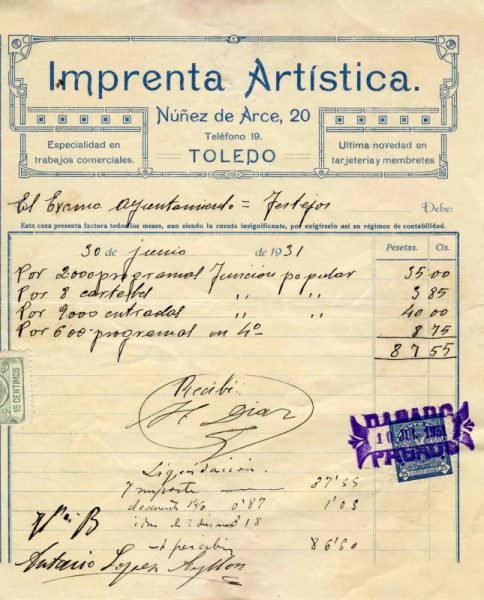 Imprenta Artística.
Núñez de Arce, 20
Teléfono 19.
TOLEDO
Especialidad en
trabajos comerciales.
Ultima novedad en
tarjetería y membretes
El Excmo Ayuntamiento = Festejos Debe:
Esta casa presenta factura todos los meses, aun siendo la cuenta insignificante, por exigírselo así su régimen de contabilidad.
30 de junio de 1931 Pesetas. Cts.
Por 2000 programas funcion popular 35 00
Por 8 carteles " " 3 85
Por 9000 entradas " " 40 00
Por 600 programas en 4º 8 75
87 55
15 CENTIMOS
Recibi:
PAGADO
10 JUL 1931
PAGADO
Liquidacion.
Importe 87'55
descuento 1% 0'87 1'05
18
A percibir 86'50
Antonio Lopez Ayllon